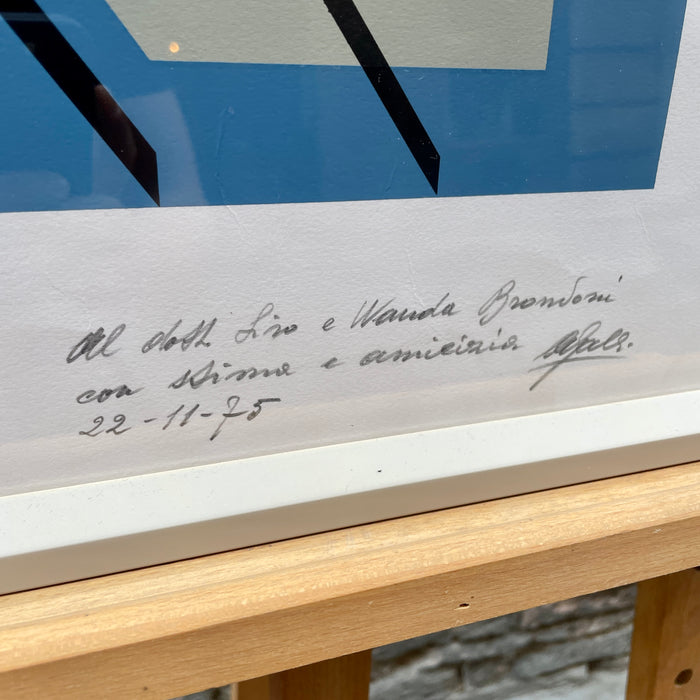 Al dott Lino e Wanda Brondoni
con stima e amicizia
22-11-75